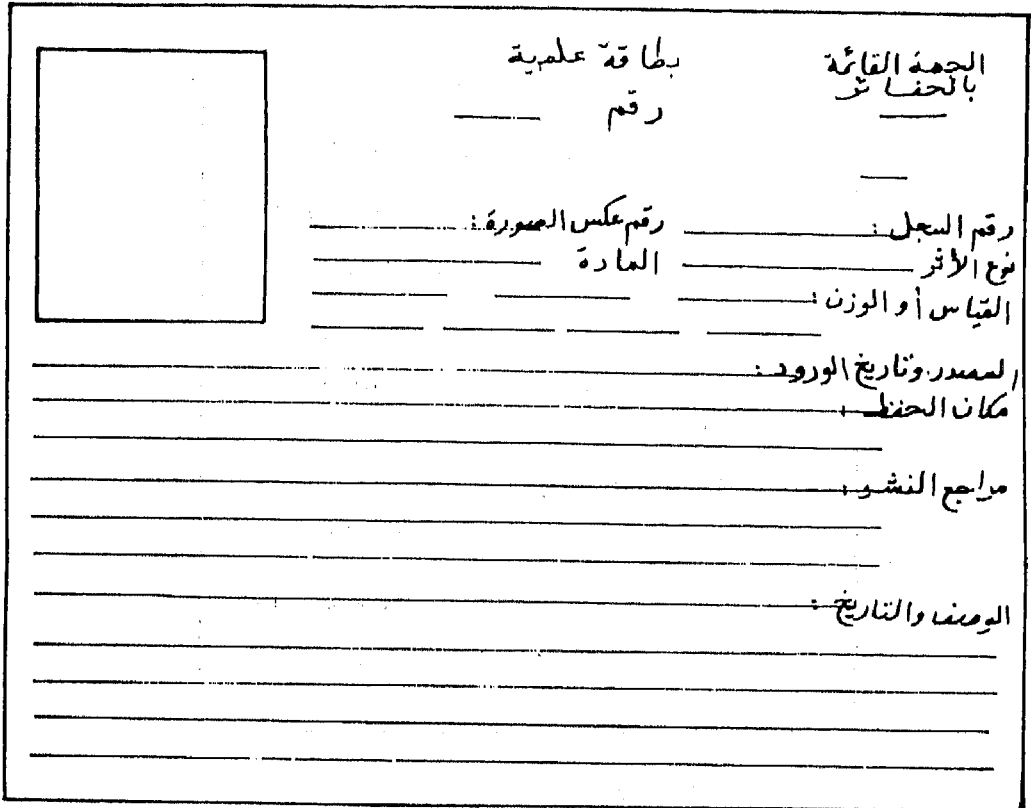 الجهة القائمة
بالحفائر
بطاقة علمية
رقم
رقم السجل :
رقم عكس الصورة :
نوع الأثر
المادة
القياس أو الوزن :
المصدر وتاريخ الورود :
مكان الحفظ :
مراجع النشر :
الوصف والتاريخ :